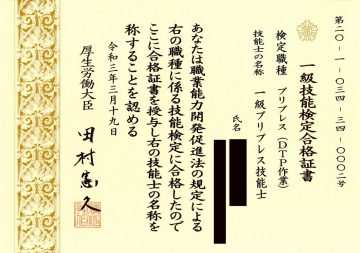 第二〇-1-〇三四-三四-〇〇〇二号
一級技能検定合格証書
検定職種　プリプレス（DTP作業）
技能士の名称　一級プリプレス技能士
氏名
あなたは職業能力開発促進法の規定による
右の職種に係る技能検定に合格したので
ここに合格証書を授与し右の技能士の名称を
称することを認める
令和三年三月十九日
厚生労働大臣　田村憲久